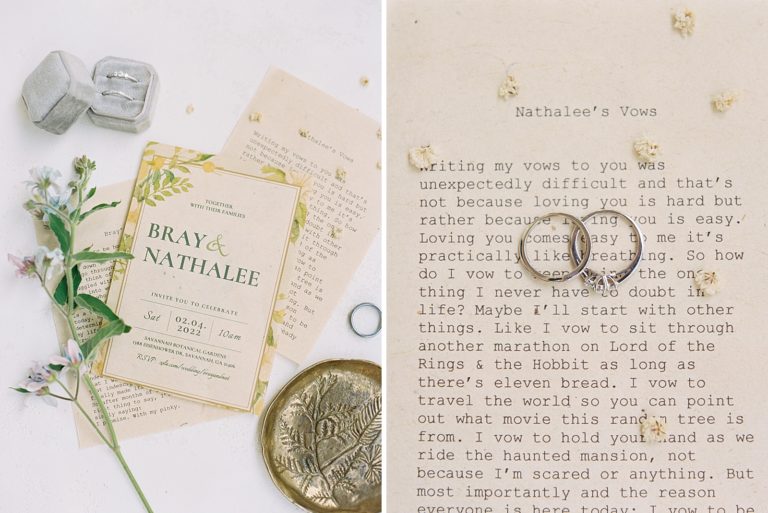 Nathalee's Vows
Writing my vows to you was
unexpectedly
not because
TOGETHER
WITH THEIR FAMILIES
BRAY &
NATHALEE
INVITE YOU TO CELEBRATE
Sat 02.04. 2022 10am
SAVANNAH BOTANICAL GARDENS
1388 EISENHOWER DR, SAVANNAH, GA
RSVP
Bray
Nathalee's Vows
Writing my vows to you was
unexpectedly difficult and that's
not because loving you is hard but
rather because loving you is easy.
Loving you comes easy to me it's
practically like breathing. So how
do I vow to keep the one
thing I never have to doubt in
life? Maybe I'll start with other
things. Like I vow to sit through
another marathon on Lord of the
Rings & the Hobbit as long as
there's eleven bread. I vow to
travel the world so you can point
out what movie this random tree is
from. I vow to hold your hand as we
ride the haunted mansion, not
because I'm scared or anything. But
most importantly and the reason
everyone is here today: I vow to be